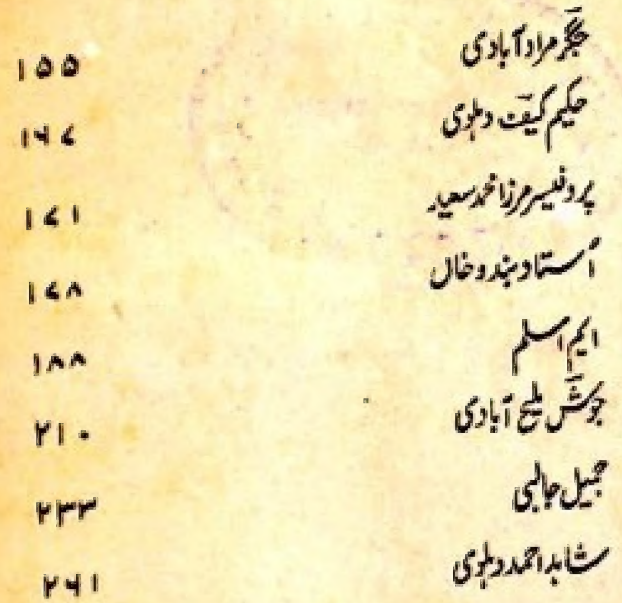 جگر مراد آبادی ۱۵۵
حکیم کیف دہلوی ۱۶۷
پروفیسر مرزا محمد سعید ۱۷۱
استاد بندو خاں ۱۷۸
ایم اسلم ۱۸۸
جوش ملیح آبادی ۲۱۰
جمیل جالبی ۲۳۳
شاہد احمد دہلوی ۲۶۱